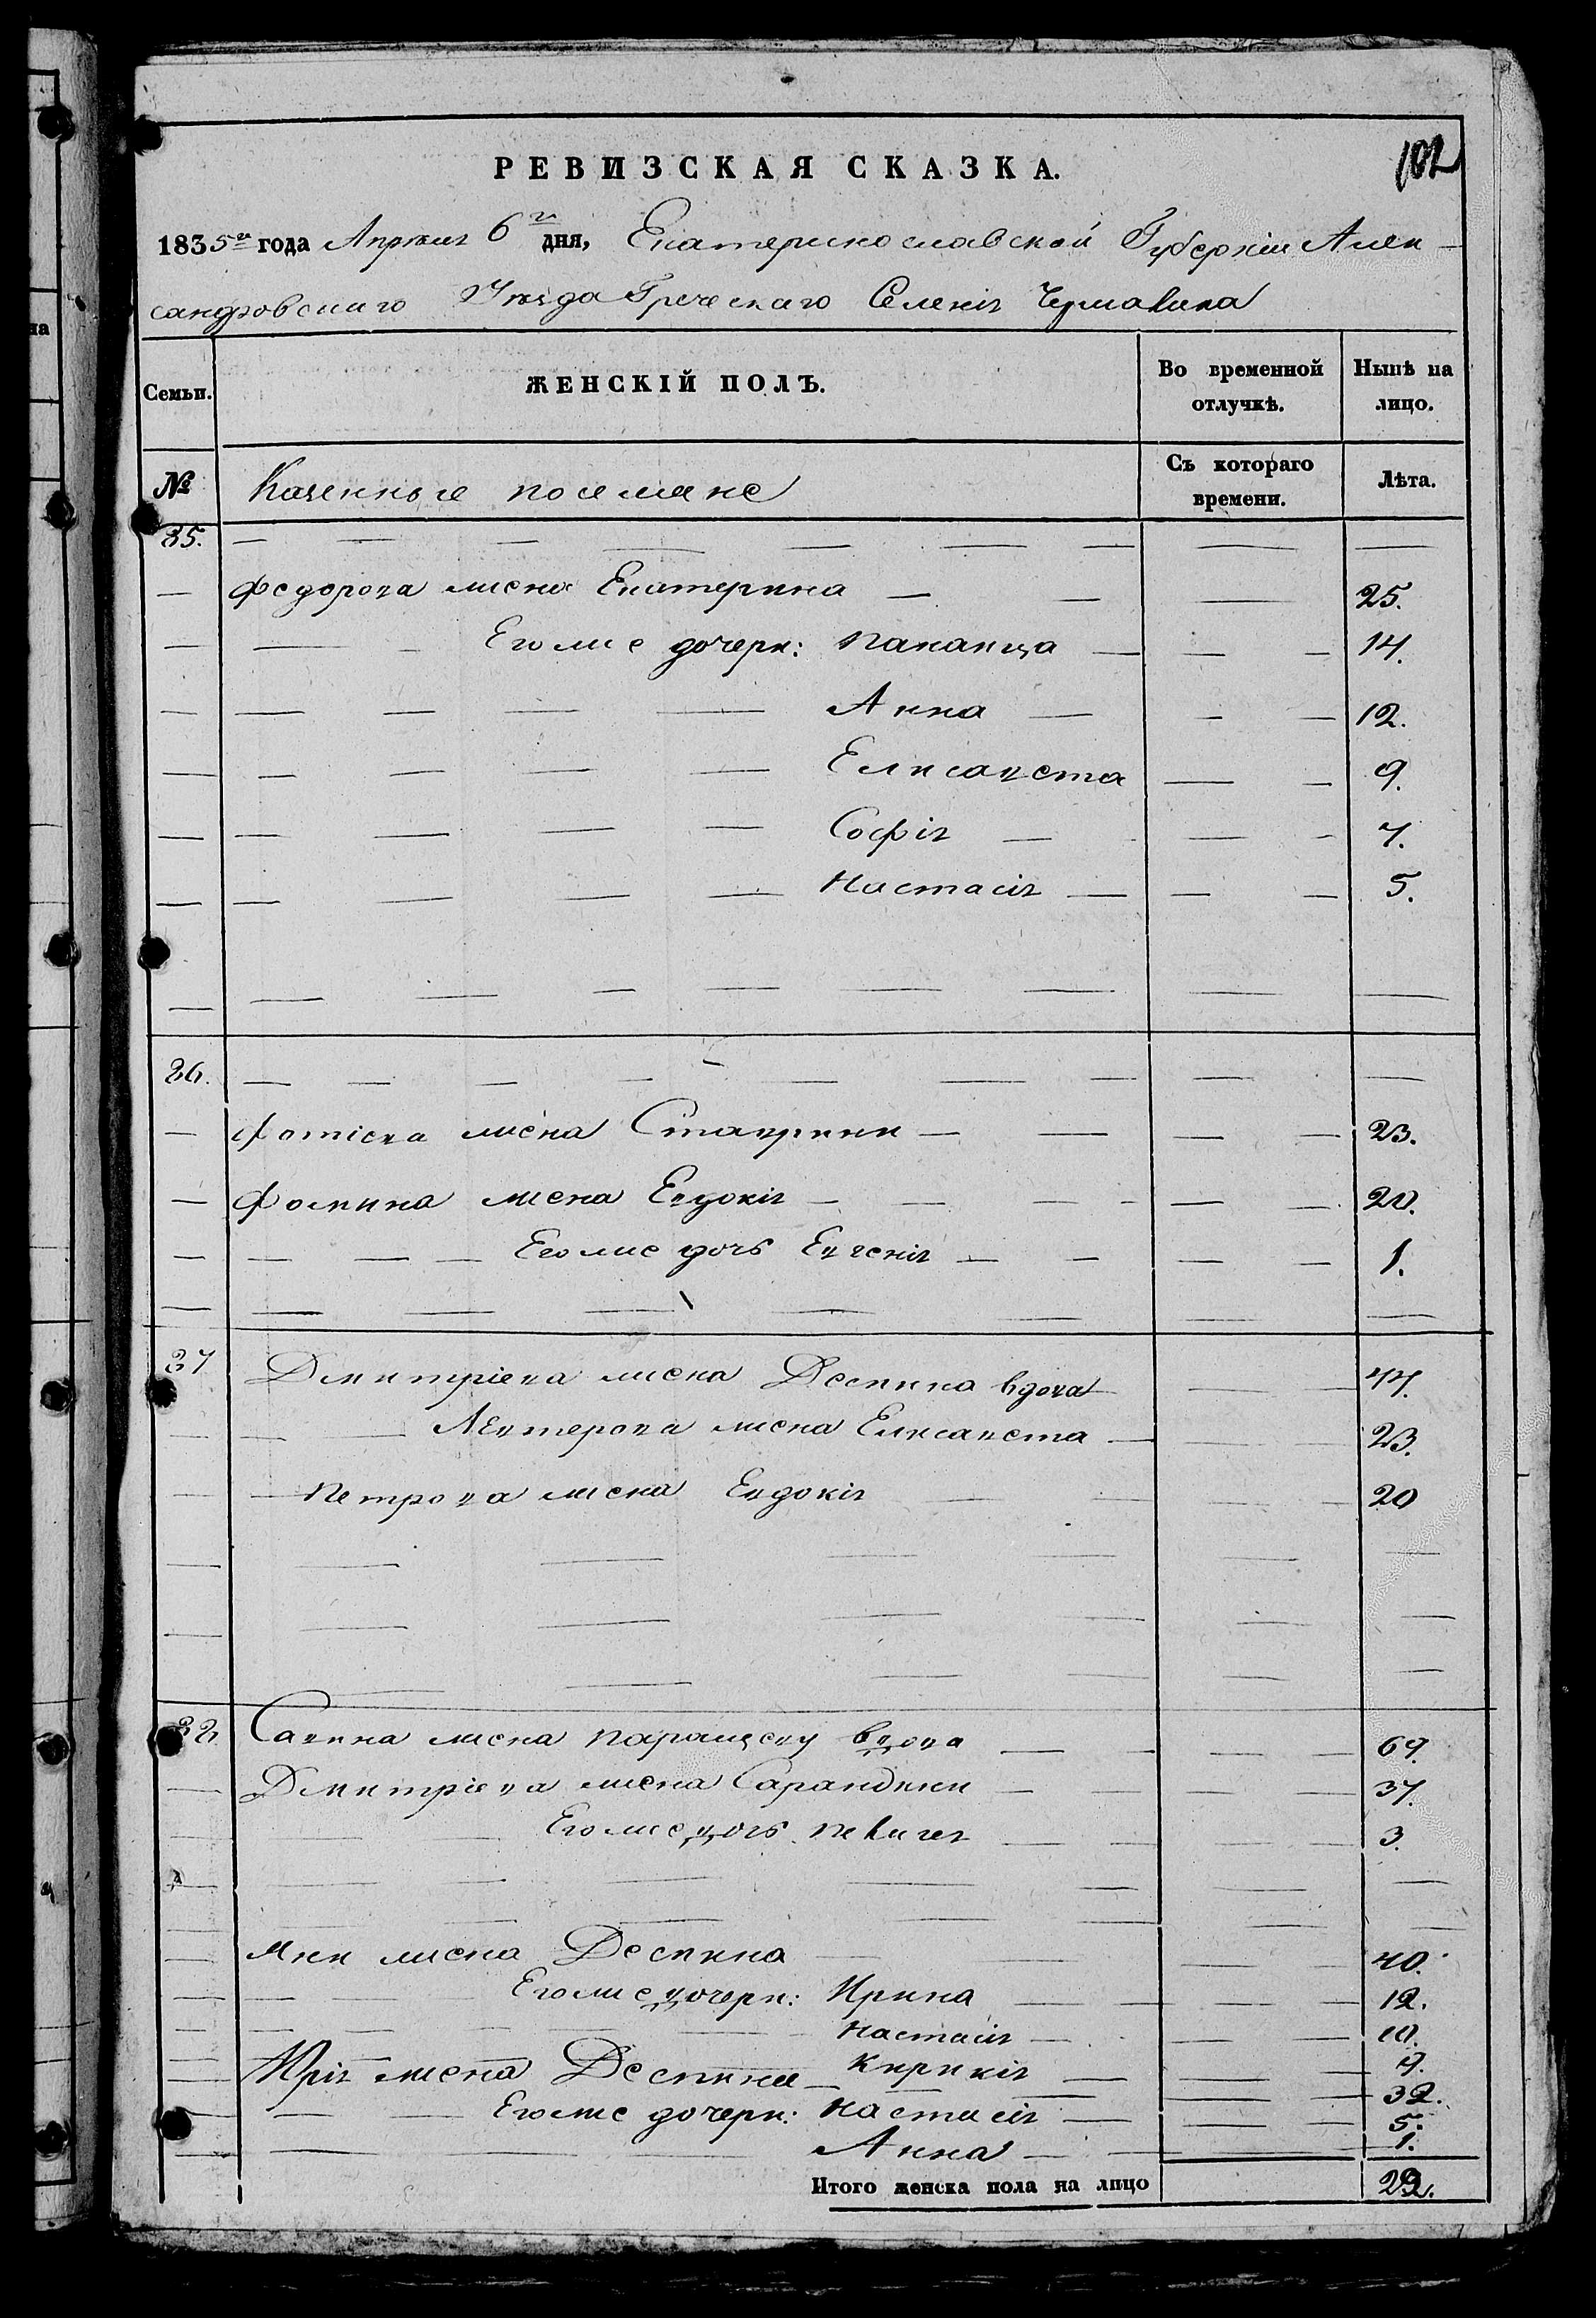 102
РЕВИЗСКАЯ СКАЗКА.
1835го года Апреля 6го дня, Екатеринославской Губернiи Алек-
сандровскаго Уезда Греческаго Селенiя Чермалика
Семьи. ЖЕНСКІЙ ПОЛЪ. Во временной отлучкѣ. Нынѣ на лицо.
№ Казенные поселяне Съ котораго времени. Лѣта.
85. — — — — — — — — —
— Федорова жена Екатерина — — — 25.
— — - Его же дочери: Панаица — — — 14.
— — — — — Анна — - — 12.
— — — — — Елисавета — — 9.
— — — — — Софiя — — - 7.
— — — — — Настасiя — — — 5.
— — — — — — — — —
86. — — — — — — — — —
— Фотiева жена Ставрини — — — — 23.
— Фомина жена Евдокiя — — — - — — 20.
— — — — Его же дочь Евгенiя — — — — 1.
— — — — — — — —
87 Дмитрiева жена Деспина вдова — — 44.
— — — Левтерова жена Елисавета — — — 23.
— — Петрова жена Евдокiя — — — — 20
— — — — — — —
— — — — — — —
— — — — — —
88 Савина жена Параскеву вдова — — — — 69.
— Дмитрiева жена Сарандини — — — — 37.
— — — Его же дочь — — — — 3.
— — — — — — — — —
— — — — — — — —
— Яни жена Деспина — — — — 40.
— — — Его же дочери: Ирина — — — — 12.
— — — — — Настасiя — — — 10.
— Кирикiя — — — 7.
Юрiя жена Деспина — — — 32.
— — — Его же дочери: Настасiя — — — 5.
— — — Анна — — — 1.
Итого женска пола на лицо 22.